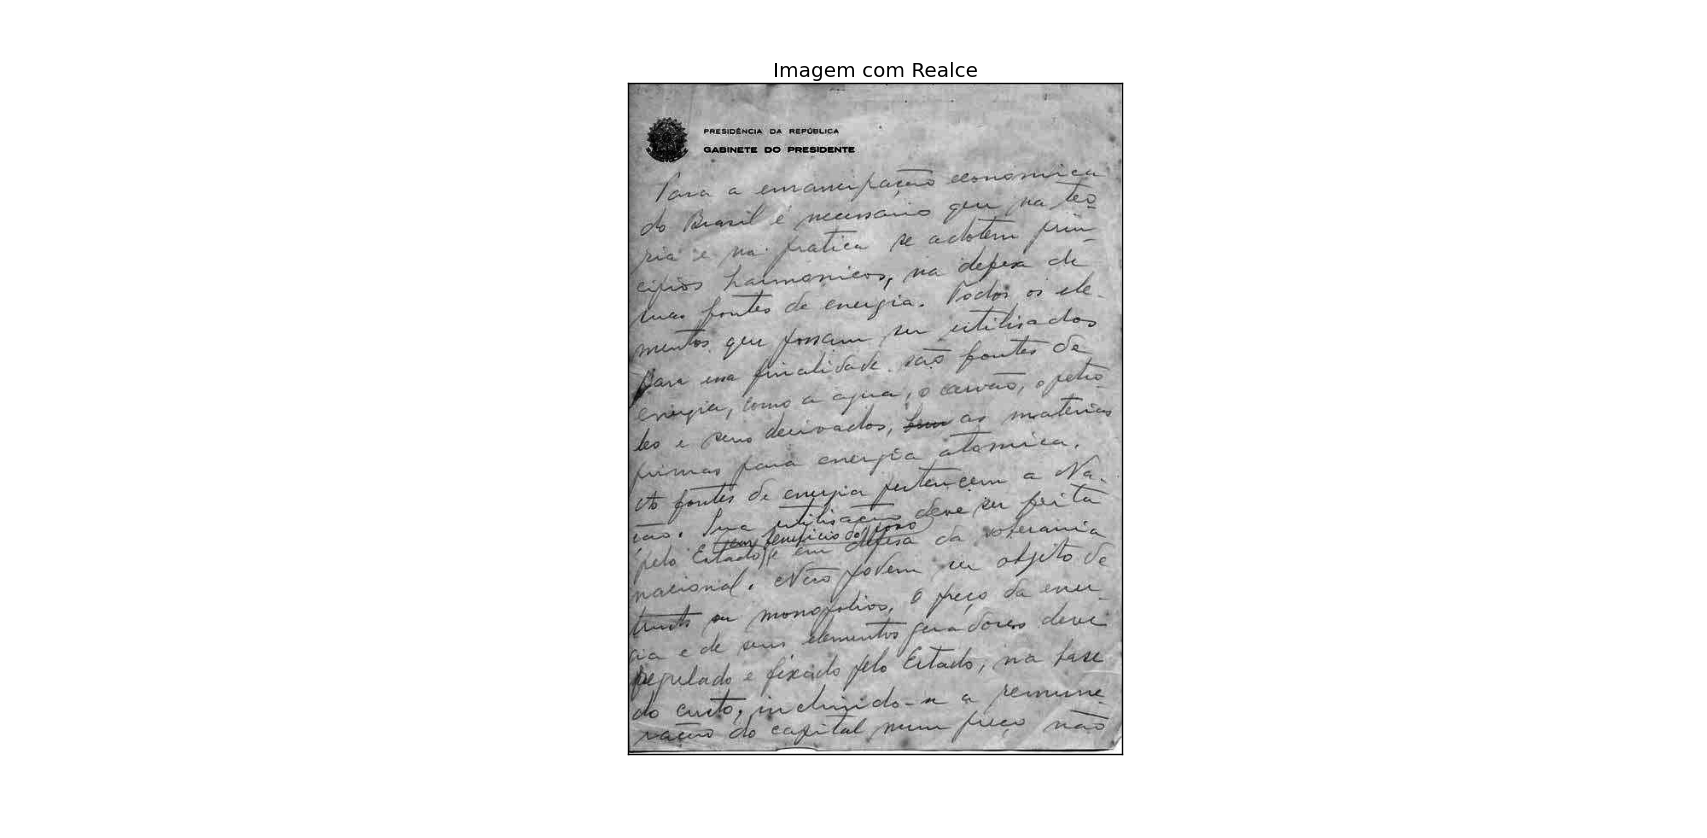 Imagem com Realce
PRESIDÊNCIA DA REPÚBLICA
GABINETE DO PRESIDENTE
Para a emancipação economica
do Brasil é necessario que na teo
ria e na pratica se adotem prin-
cipios harmonicos, na defesa de
suas fontes de energia. Todos os ele-
mentos que possam ser utilisados
para essa finalidade são fontes de
energia, como a agua, o carvão, o petro
leo e seus derivados, as materias
primas para energia atomica.
As fontes de energia pertencem a Na-
ção. Sua utilisação deve ser feita
(em beneficio do povo)
pelo Estado e em defesa da soberania
nacional. Não podem ser objeto de
trusts ou monopolios. O preço da ener-
gia e de seus elementos geradores deve
regulado e fixado pelo Estado, na base
do custo, incluindo-se a remune
ração do capital num preço não